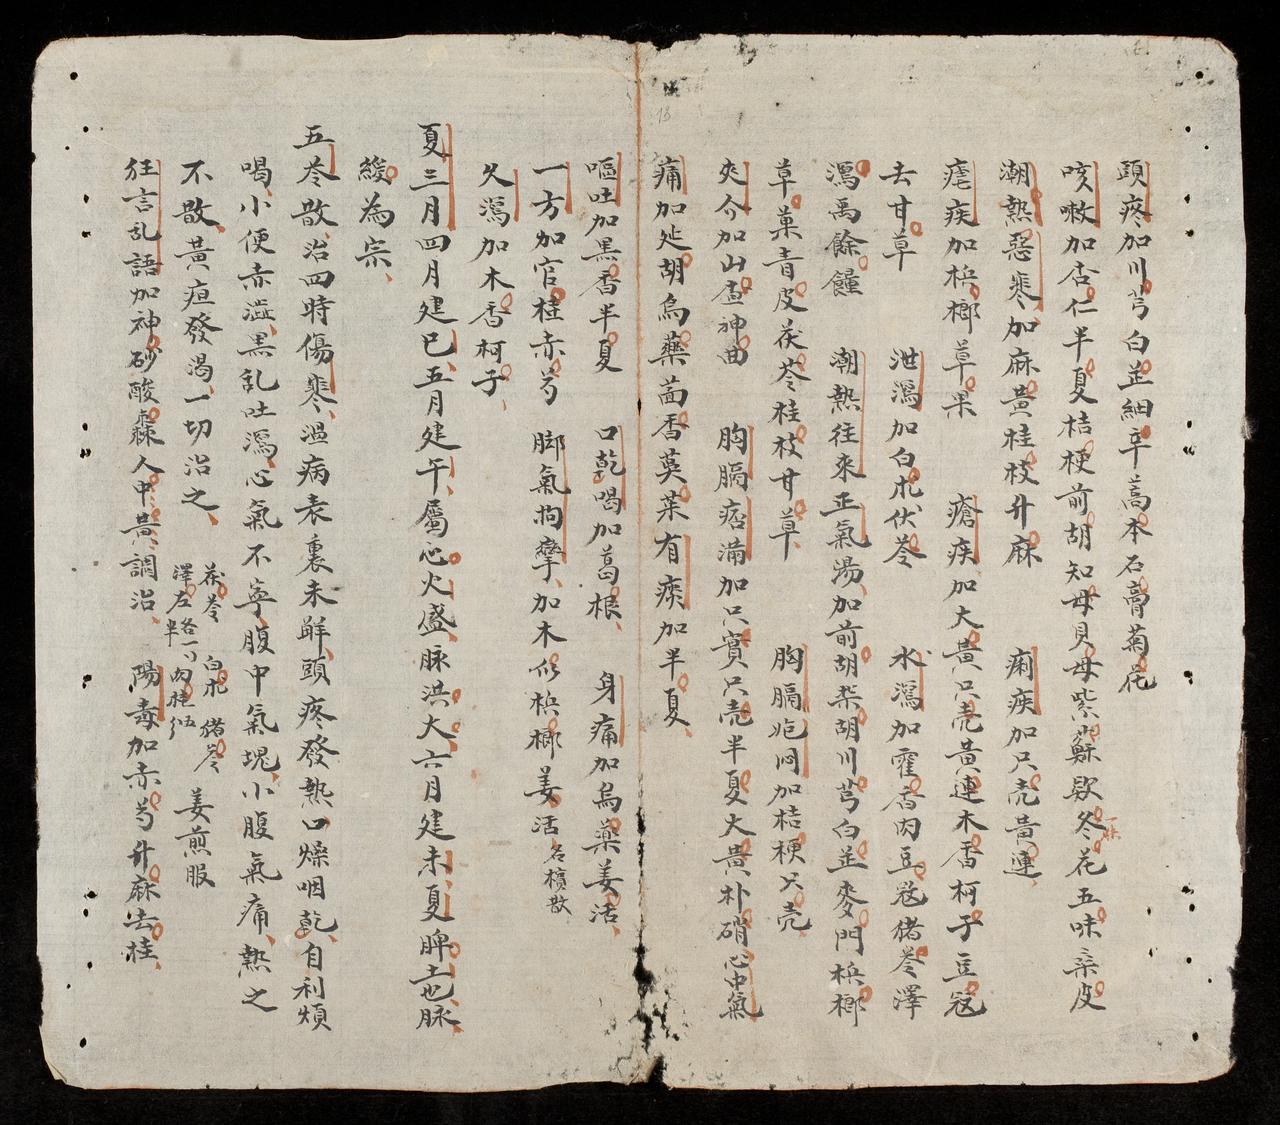 頭疼加川芎白芷細辛藁本石膏菊花
咳嗽加杏仁半夏桔梗前胡知母貝母紫蘇欵冬花五味桑皮
潮熱惡寒加麻黄桂枝升麻 痢疾加只壳黄連
瘧疾加梹榔草果 瘡疾加大黄只壳黄連木香柯子豆寇
去甘草 泄瀉加白朮伏苓 水瀉加藿香肉豆寇猪苓澤
瀉禹餘粮 潮熱往來正氣湯加前胡柴胡川芎白芷麥門梹榔
草菓青皮茯苓桂枝甘草 胸膈飽悶加桔梗只壳
夾介加山査神曲 胸膈痞滿加只實只壳半夏大黄朴硝心中氣
痛加延胡烏藥茴香茱萸有痰加半夏
嘔吐加黑香半夏 口乾喝加葛根 身痛加烏藥姜活
一方加官桂赤芍 脚氣拘攣加木瓜梹榔姜活名檳散
久瀉加木香柯子
夏三月四月建巳五月建午屬心火盛脉洪大六月建未夏脾土也脉
緩為宗
五苓散治四時傷寒温病表裏未解頭疼發熱口燥咽乾自利煩
喝小便赤澁黑乱吐瀉心氣不寧腹中氣塊小腹氣痛熱之
不散黄疸發渴一切治之 茯苓 白朮 猪苓 澤左各一刂半 肉桂 姜煎服
狂言乱語加神砂酸棗人中黄調治 陽毒加赤芍升麻去桂